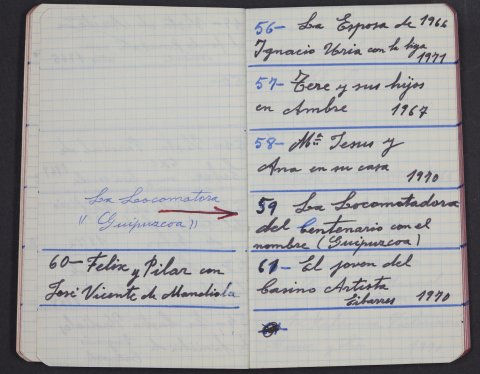 La Locomotora
"Guipuzcoa"
60- Felix y Pilar con
José Vicente de Mandiola
56- La Esposa de 1966
Ignacio Uria con la hija
1971
57- Tere y sus hijos
en Ambre 1967
58- Mª Jesus y
Ana en su casa
1970
59 La Locomotadora
del Centenario con el
nombre (Guipuzcoa)
61- El joven del
Casino Artista
Eibarres 1970